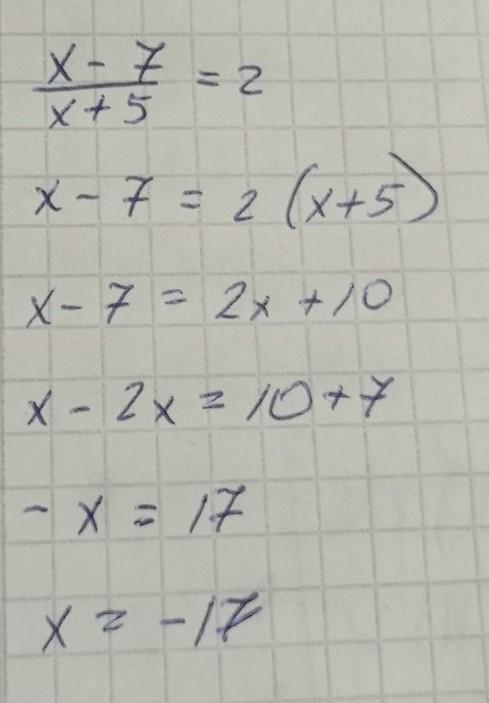 x - 7 / x + 5 = 2
x - 7 = 2 (x+5)
x - 7 = 2x + 10
x - 2x = 10 + 7
- x = 17
x = -17